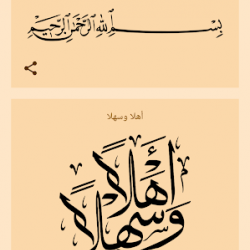 بسم الله الرحمن الرحيم
أهلا وسهلا
أهلاً
وسهلاً